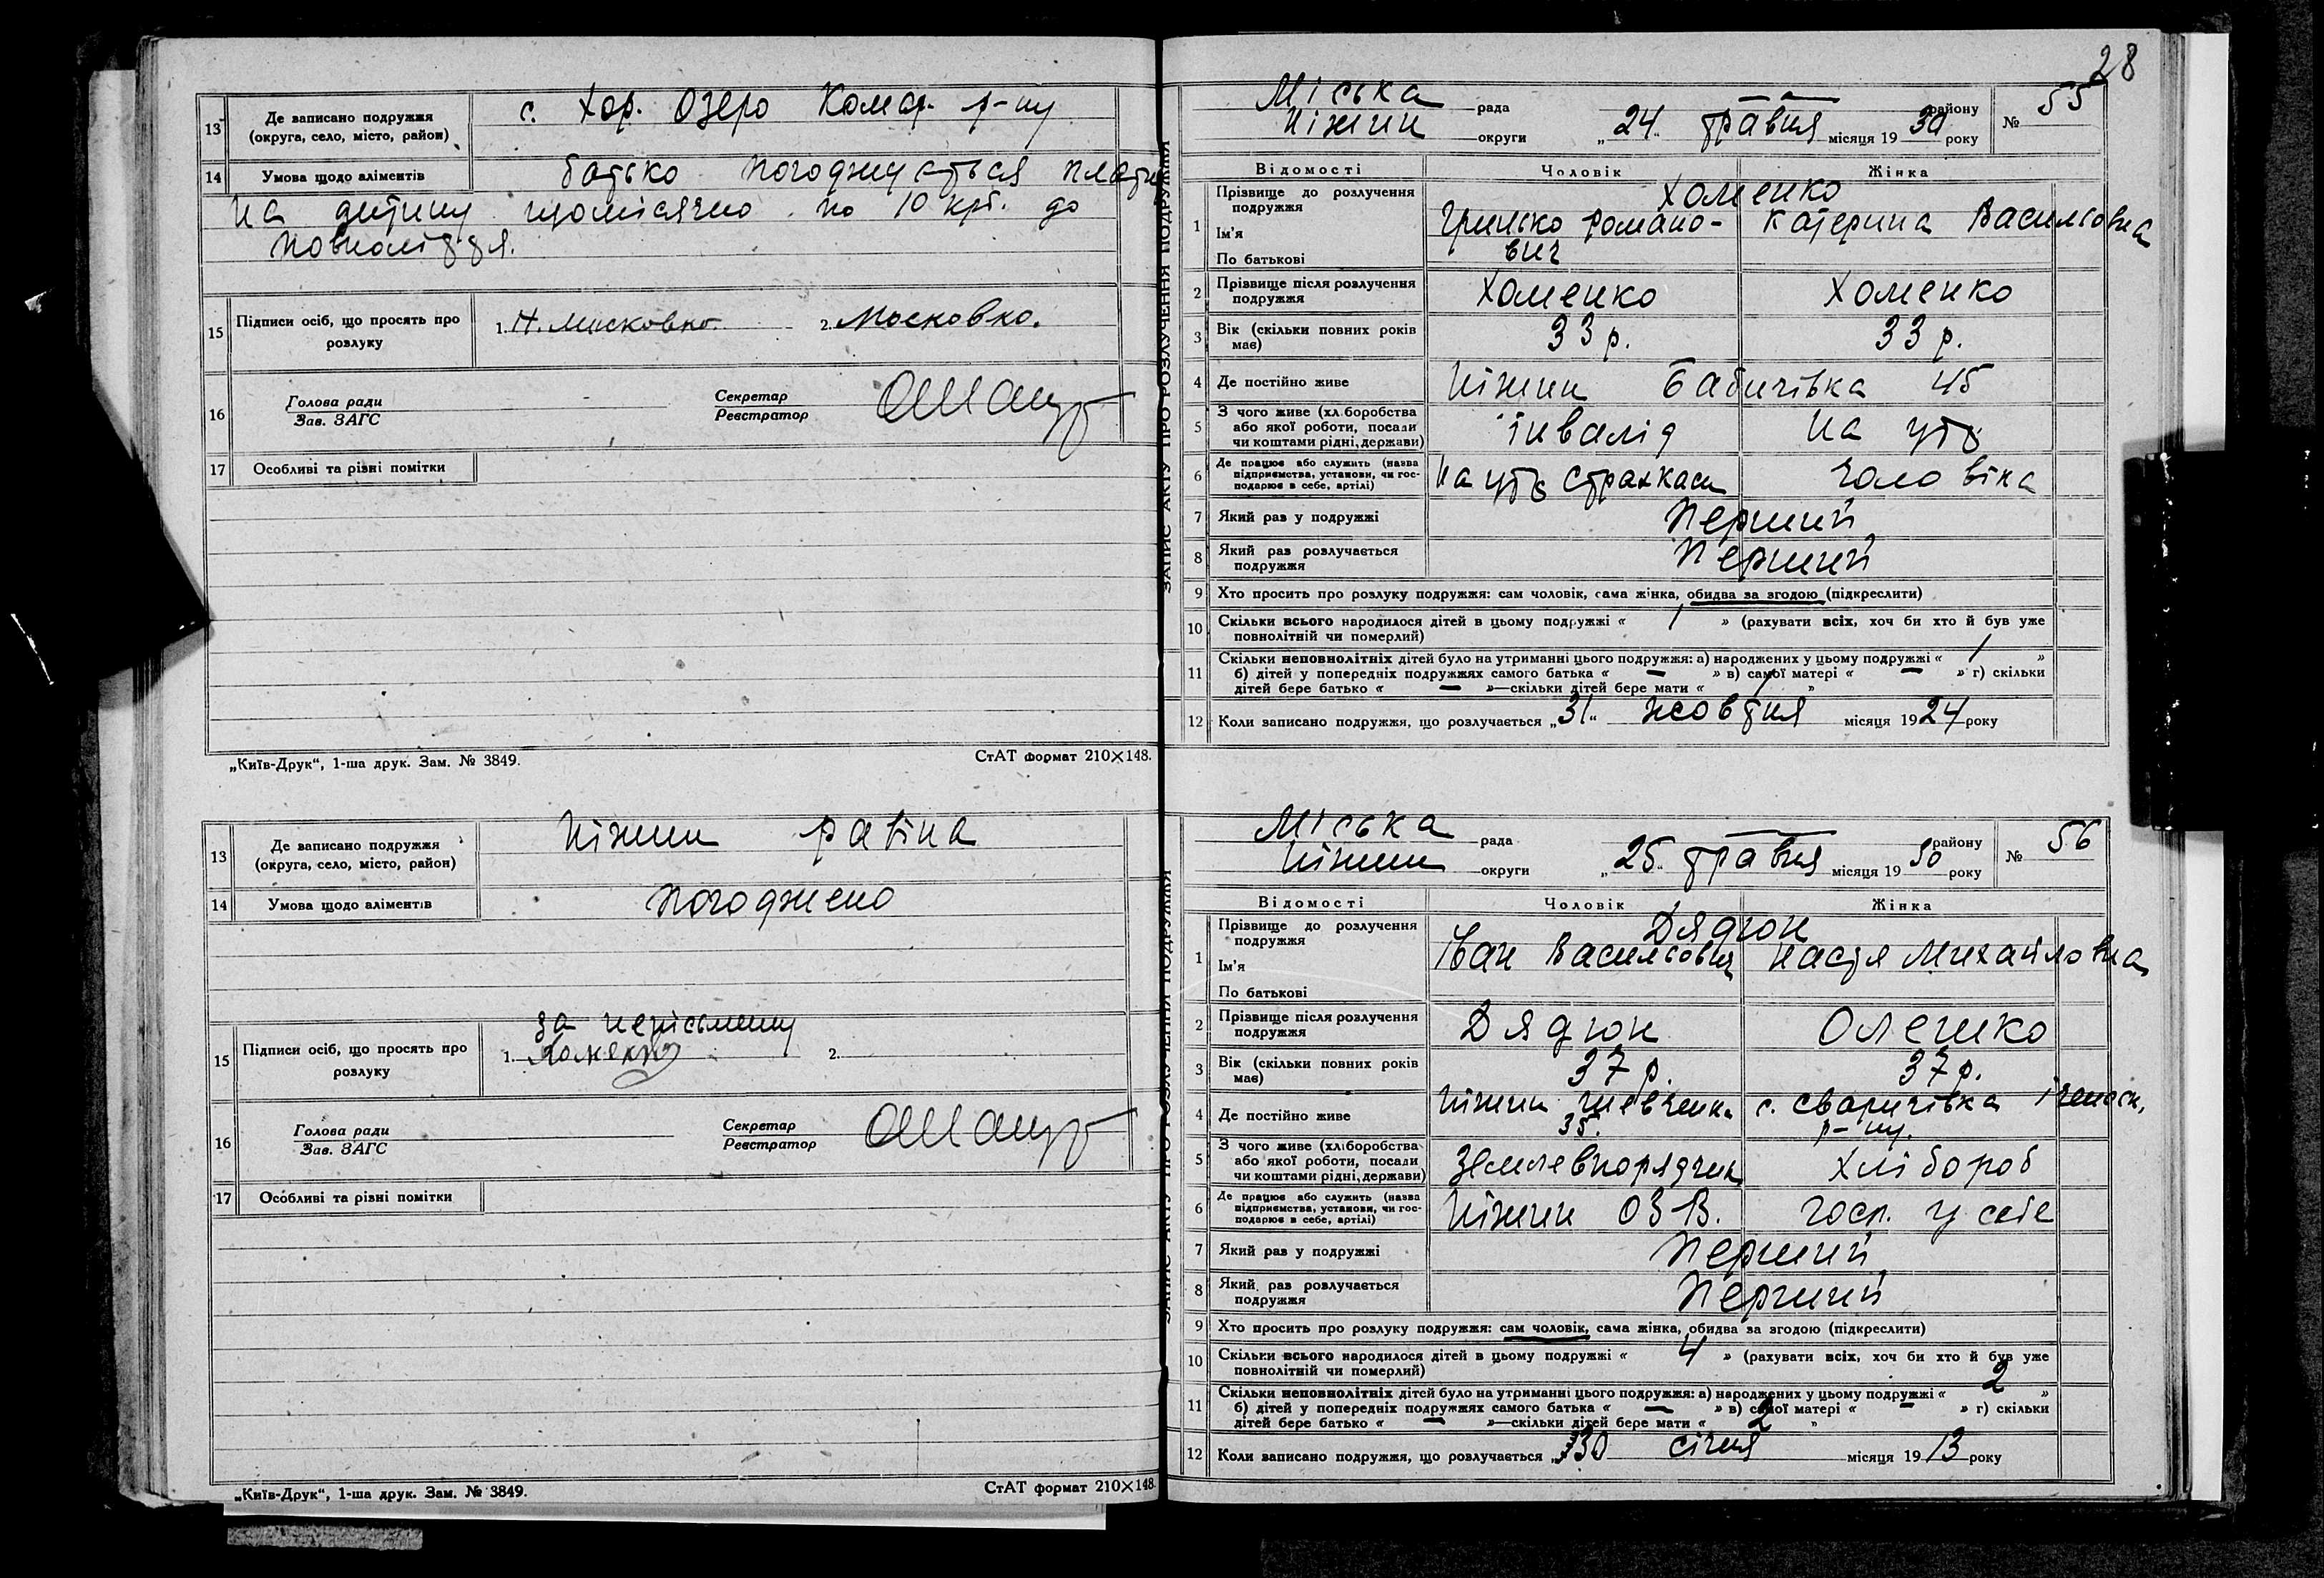 13 Де записано подружжя (округа, село, місто, район) с. Хор. Озеро Комар. р-ну
14 Умова щодо аліментів батько погоджується платить
на дитину щомісячно по 10 крб. до
повноліття.
15 Підписи осіб, що просять про розлуку 1. Н. Московко 2. Московко.
16 Голова ради
Зав. ЗАГС
Секретар
Реєстратор
17 Особливі та різні помітки
„Київ-Друк“, 1-ша друк. Зам. № 3849. СтАТ формат 210×148.
13 Де записано подружжя (округа, село, місто, район) Ніжин
14 Умова щодо аліментів погоджено
15 Підписи осіб, що просять про розлуку за неписьменну
1. Хоменко 2.
16 Голова ради
Зав. ЗАГС
Секретар
Реєстратор
17 Особливі та різні помітки
„Київ-Друк“, 1-ша друк. Зам. № 3849. СтАТ формат 210×148.
ЗАПИС АКТУ ПРО РОЗЛУЧЕННЯ ПОДРУЖЖЯ
28
Міська рада — району № 55
Ніжин округи „24“ травня місяця 1930 року
Відомості Чоловік Жінка
1 Прізвище до розлучення подружжя Хоменко
Ім'я Грицько Романо- Катерина Васильовна
По батькові вич
2 Прізвище після розлучення подружжя Хоменко Хоменко
3 Вік (скільки повних років має) 33 р. 33 р.
4 Де постійно живе Ніжин Бабичівка 45
5 З чого живе (хліборобства або якої роботи, посади чи коштами рідні, держави) інвалід на утр
6 Де працює або служить (назва підприємства, установи, чи господарює в себе, артілі) на утр страхкаси чоловіка
7 Який раз у подружжі Перший
8 Який раз розлучається подружжя Перший
9 Хто просить про розлуку подружжя: сам чоловік, сама жінка, обидва за згодою (підкреслити)
10 Скільки всього народилося дітей в цьому подружжі « 1 » (рахувати всіх, хоч би хто й був уже
повнолітній чи померлий)
11 Скільки неповнолітніх дітей було на утриманні цього подружжя: а) народжених у цьому подружжі « 1 »
б) дітей у попередніх подружжях самого батька « — » в) самої матері « — » г) скільки
дітей бере батько « — »—скільки дітей бере мати « 1 »
12 Коли записано подружжя, що розлучається „31“ жовтня місяця 1924 року
ЗАПИС АКТУ ПРО РОЗЛУЧЕННЯ ПОДРУЖЖЯ
Міська рада — району № 56
Ніжин округи „25“ травня місяця 1930 року
Відомості Чоловік Жінка
1 Прізвище до розлучення подружжя Дядюн
Ім'я Іван Васильович Настя Михайловна
По батькові
2 Прізвище після розлучення подружжя Дядюн Олешко
3 Вік (скільки повних років має) 37 р. 37 р.
4 Де постійно живе Ніжин Шевченка 35. с. Сваричівка Іченськ. р-ну.
5 З чого живе (хліборобства або якої роботи, посади чи коштами рідні, держави) Землевпорядчик хлібороб
6 Де працює або служить (назва підприємства, установи, чи господарює в себе, артілі) Ніжин ОЗВ. госп. у себе
7 Який раз у подружжі Перший
8 Який раз розлучається подружжя Перший
9 Хто просить про розлуку подружжя: сам чоловік, сама жінка, обидва за згодою (підкреслити)
10 Скільки всього народилося дітей в цьому подружжі « 4 » (рахувати всіх, хоч би хто й був уже
повнолітній чи померлий)
11 Скільки неповнолітніх дітей було на утриманні цього подружжя: а) народжених у цьому подружжі « 2 »
б) дітей у попередніх подружжях самого батька « — » в) самої матері « — » г) скільки
дітей бере батько « — »—скільки дітей бере мати « 2 »
12 Коли записано подружжя, що розлучається „30 січня місяця 1913 року